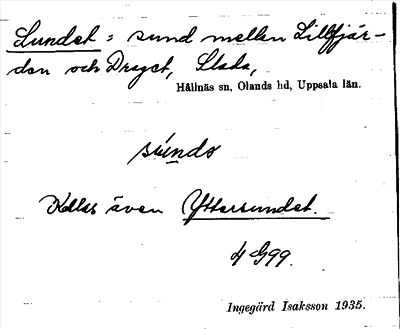 Sundet: sund mellen Lillfjär-
den och Draget, Slada,
Hållnäs sn, Olands hd, Uppsala län.
súndə
Kallas även Yttersundet.
4 G99.
Ingegärd Isaksson 1935.